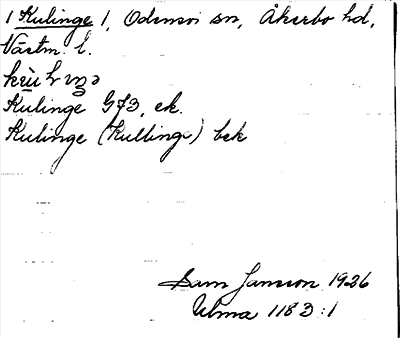 1 Kulinge 1, Odensvi sn, Åkerbo hd,
Västm. l.
Kulinge GJ3, ek.
Kulinge (Kullinge) bek
Sam Jansson 1926
Ulma 118 3:1